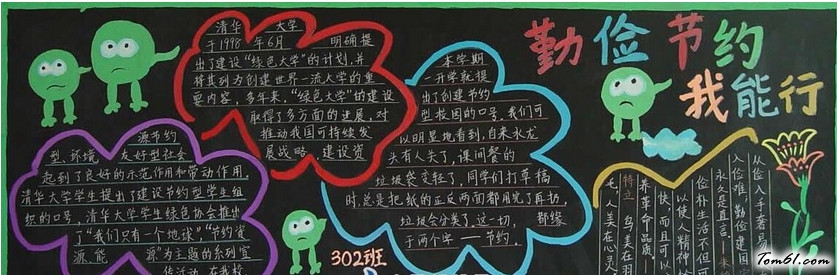 勤俭节约
我能行
清华 大学
于1998 年6月 明确提
出了建设“绿色大学”的计划,并
将其列为创建世界一流大学的重
要内容,多年来,“绿色大学”的建设
取得了多方面的进展,对
推动我国可持续发
展战略 建设资
源节约
型、环境 友好型社会
起到了良好的示范作用和带动作用。
清华大学学生提出了建设节约型学生组
织的口号,清华大学学生绿色协会推出
了“我们只有一个地球”,“节约资
源、能 源”为主题的系列宣
传活动 在我校
本学期
一开学就提
出了创建节约
型校园的口号。我们可
以明显地看到,自来水龙
头有人关了,课间餐的
垃圾袋变轻了,同学们打草稿
时,总是把纸的正反两面都用完了再扔,
垃圾会分类了。这一切, 都缘
于两个字——节约。
302班
从俭入手奢易
入俭难,勤俭建国
永久是直言—朱
俭朴生活不但可
以使人精神
快,而且可以
养革命品质。
特立 鸟美在羽
毛,人美在心灵
Tom61.com